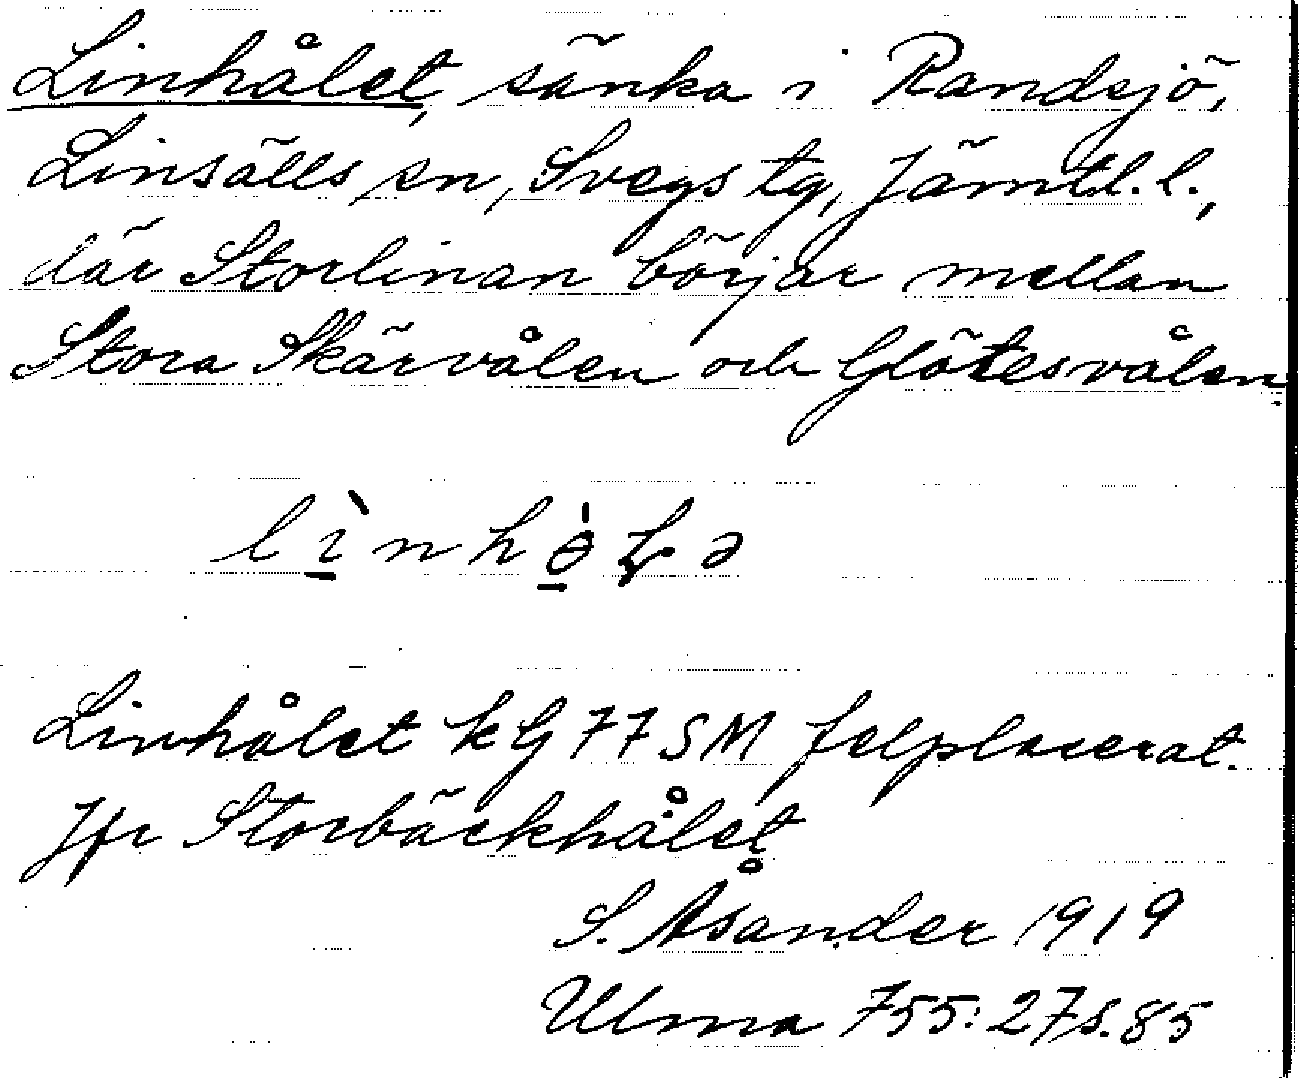 Linhålet, sänka i Randsjö,
Linsälls sn, Svegs tg, Jämtl. l.,
där Storlinan börjar mellan
Stora Skärvålen och Glötesvålen
Linhålet kG 77 SM felplacerat.
Jfr Storbäckhålet
S. Åsander 1919
Ulma 755: 27 s. 85